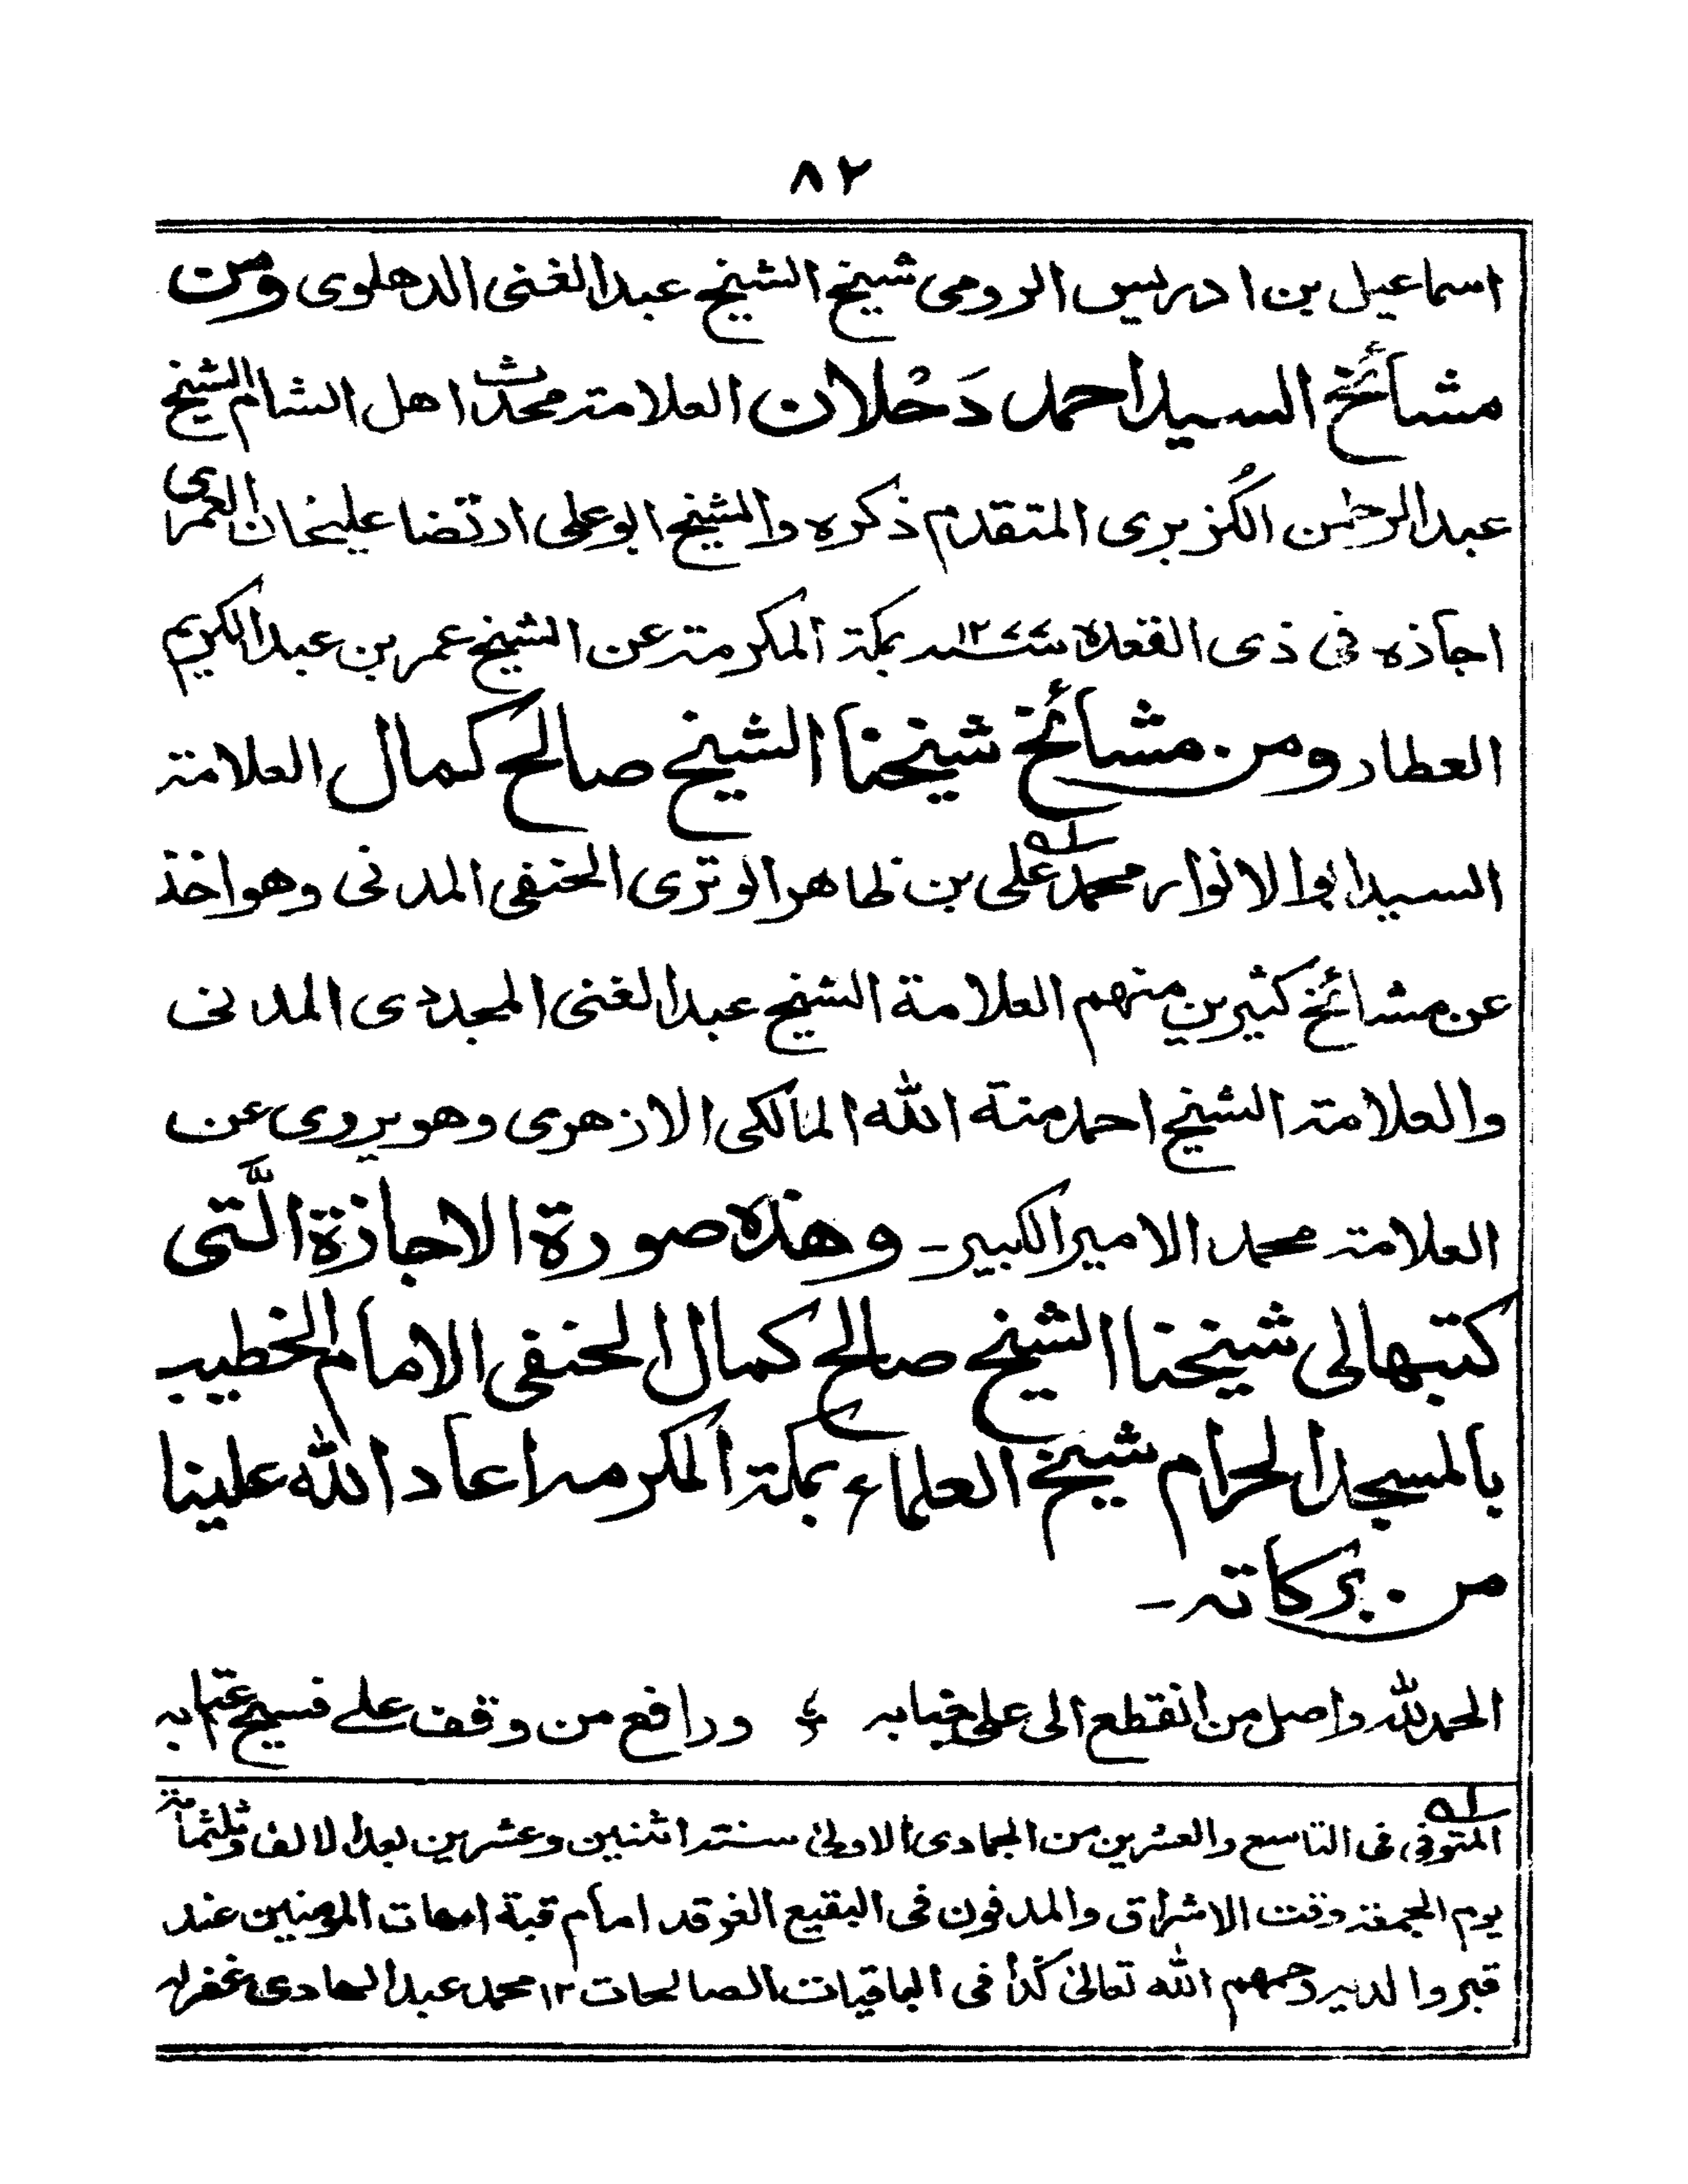 ٨٢
اسماعيل بن ادريس الرومى شيخ الشيخ عبدالغنى الدهلوى ومن
مشائخ السيد احمد دَحْلان العلامة محدث اهل الشام الشيخ
عبدالرحمن الكُزبرى المتقدم ذكره والشيخ ابوعلى ارتضا عليخان العمرى
اجازه فى ذى القعدة سنة بمكة المكرمة عن الشيخ عمر بن عبدالكريم
العطار ومن مشائخ شيخنا الشيخ صالح كمال العلامة
السيد ابوالانوار محمد على بن ظاهر الوترى الحنفى المدنى وهو اخذ
عن مشائخ كثيرين منهم العلامة الشيخ عبدالغنى المجددى المدنى
والعلامة الشيخ احمد منة الله المالكى الازهرى وهو يروى عن
العلامة محمد الامير الكبير ـ وهذه صورة الاجازة الَّتى
كتبها لى شيخنا الشيخ صالح كمال الحنفى الامام الخطيب
بالمسجد الحرام شيخ العلماء بمكة المكرمه اعاد الله علينا
من بركاته ـ
الحمد لله واصل من انقطع الى على جنابه ورافع من وقف على فسيح عتابه
له المتوفى فى التاسع والعشرين من الجمادى الاولى سنة اثنين وعشرين بعد الالف وثلثمائة
يوم الجمعة وقت الاشراق والمدفون فى البقيع الغرقد امام قبة امهات المومنين عند
قبر والديه رحمهم الله تعالى كذا فى الباقيات الصالحات ١٢ محمد عبدالهادى غفرله